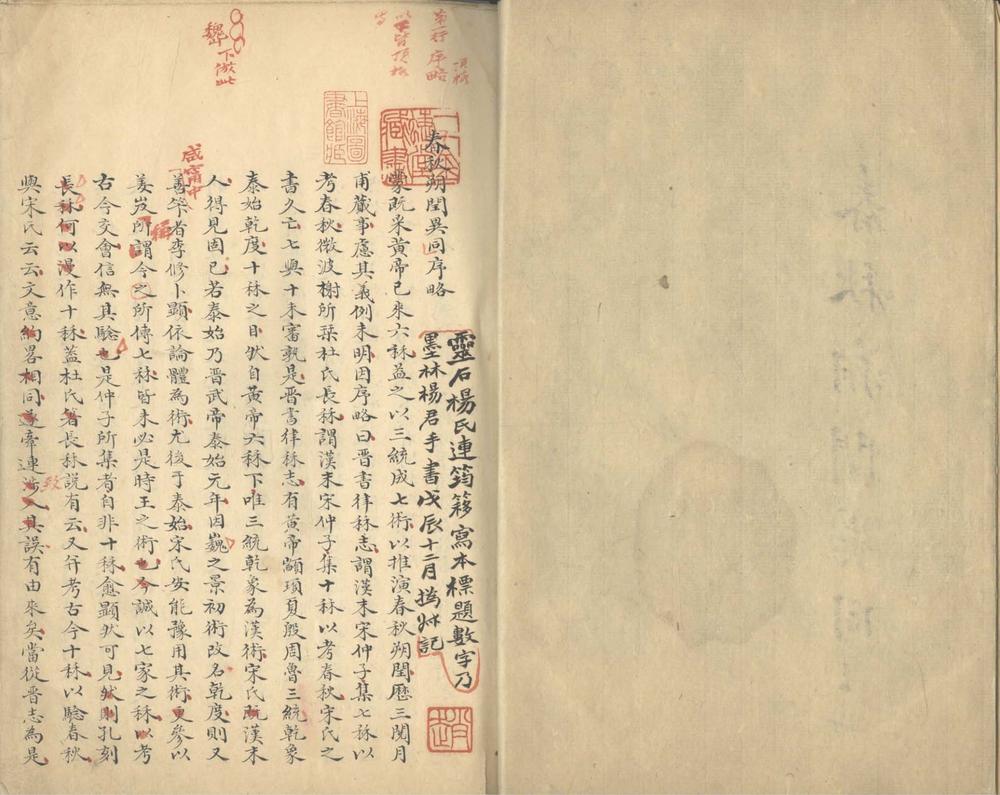 第一行序略
頂格
以下皆頂格
寫
魏
下倣此
上海圖
書館藏
春秋朔閏異同序略
靈石楊氏連筠簃寫本標題數字乃
墨林楊君手書戊辰十二月撝叔記
趙
蒙既采黃帝已來六秝益之以三統成七術以推演春秋朔閏歷三閱月
甫蕆事慮其義例未明因序略曰晋書律秝志謂漢末宋仲子集七秝以
考春秋微波榭所栞杜氏長秝謂漢末宋仲子集十秝以考春秋宋氏之
書久亡七與十未審孰是晋書律秝志有黃帝顓頊夏殷周魯三統乾象
泰始乾度十秝之目然自黃帝六秝下唯三統乾象為漢術宋氏既漢末
人得見固已若泰始乃晋武帝泰始元年因巍之景初術改名乾度則又
咸甯中
善筭者李修卜顯依論體為術尤後于泰始宋氏安能豫用其術更參以
姜岌所謂今之所傳七秝皆未必是時王之術也今誠以七家之秝以考
稱
古今交會信無其驗也是仲子所集者自非十秝愈顯狀可見然則孔刻
長秝何以漫作十秝蓋杜氏箸長秝說有云又并考古今十秝以驗春秋
致
與宋氏云云文意約畧相同遂牽連涉入其誤有由來矣當從晋志為是